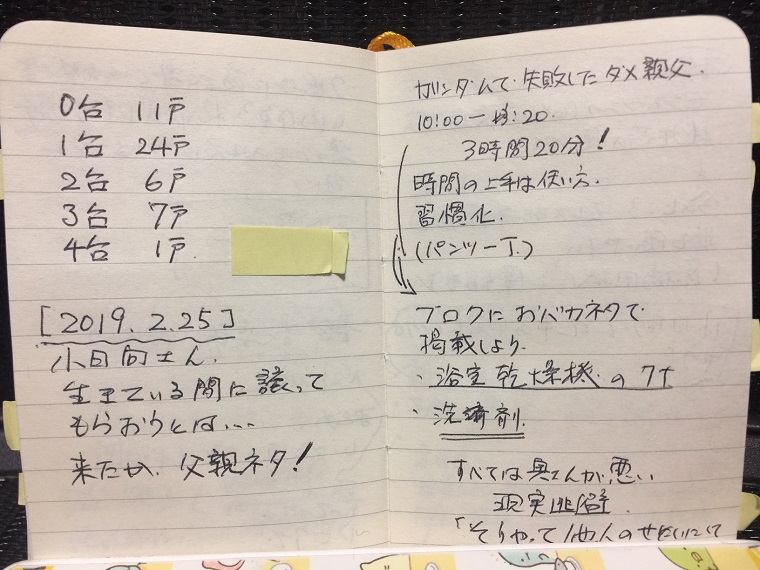 0台 11戸
1台 24戸
2台 6戸
3台 7戸
4台 1戸
[2019.2.25]
小日向さん.
生きている間に譲って
もらおうとは…
来たか、父親ネタ!
ガンダムで失敗したダメ親父.
10:00ー :20.
3時間20分!
時間の上手な使い方.
習慣化.
(パンツ一丁.)
ブログにおバカネタで
掲載しよう.
・浴室乾燥機の
・洗濟剤.
すべては奥さんが悪い
現実逃避.
「そうやって他人のせいにして